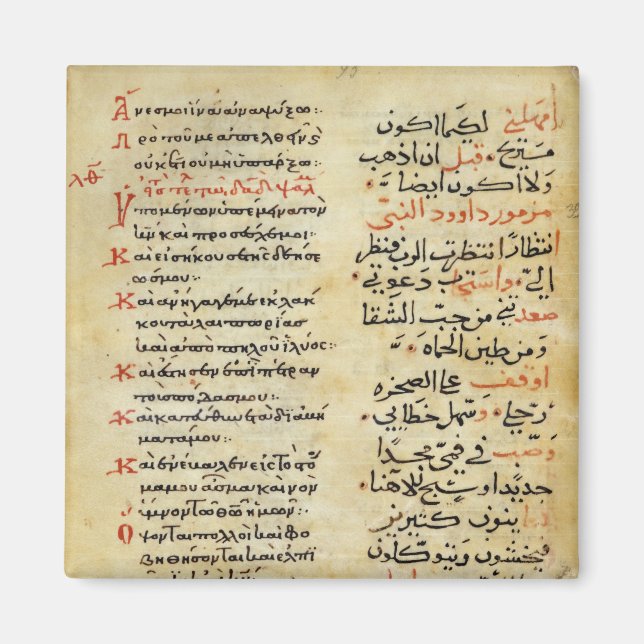 Ἄνες μοι ἵνα ἀναψύξω:·
Πρὸ τοῦ με ἀπελθεῖν ϗ
οὐκέτι οὐ μὴ ὑπάρξω:·
λθ
Ὑπομένων ὑπέμεινα τὸν
κν καὶ προσέσχε μοι:·
Καὶ εἰσήκουσε τῆς δεήσε
ώς μου:·
Καὶ ἀνήγαγέ με ἐκ λάκ
κου ταλαιπωρίας
καὶ ἀπὸ πηλοῦ ἰλύος:·
Καὶ ἔστησεν ἐπὶ πέτραν
τοὺς πόδας μου:·
Καὶ κατεύθυνε τὰ διαβή
ματά μου:·
Καὶ ἐνέβαλεν εἰς τὸ στό
μα μου ᾆσμα καινόν
ὕμνον τῶ θῶ ἡμῶν:·
Ὄψονται πολλοὶ καὶ φο
βηθήσονται καὶ ἐλπι
امهلني لكيما اكون
مستريح · قبل ان اذهب
ولا اكون ايضا
مزمور داوود النبي
انتظارًا انتظرت الرب فنظر
الي · واستجاب دعوتي
صعدتني من جب الشقا
ومن طين الحماه
اوقف على الصخره
رجلي · وسهل خطاي
وصب في فمي مجدًا
جديدا وتسبيح لالاهنا
ينون كتيرين
فيخشون ويتوكلون